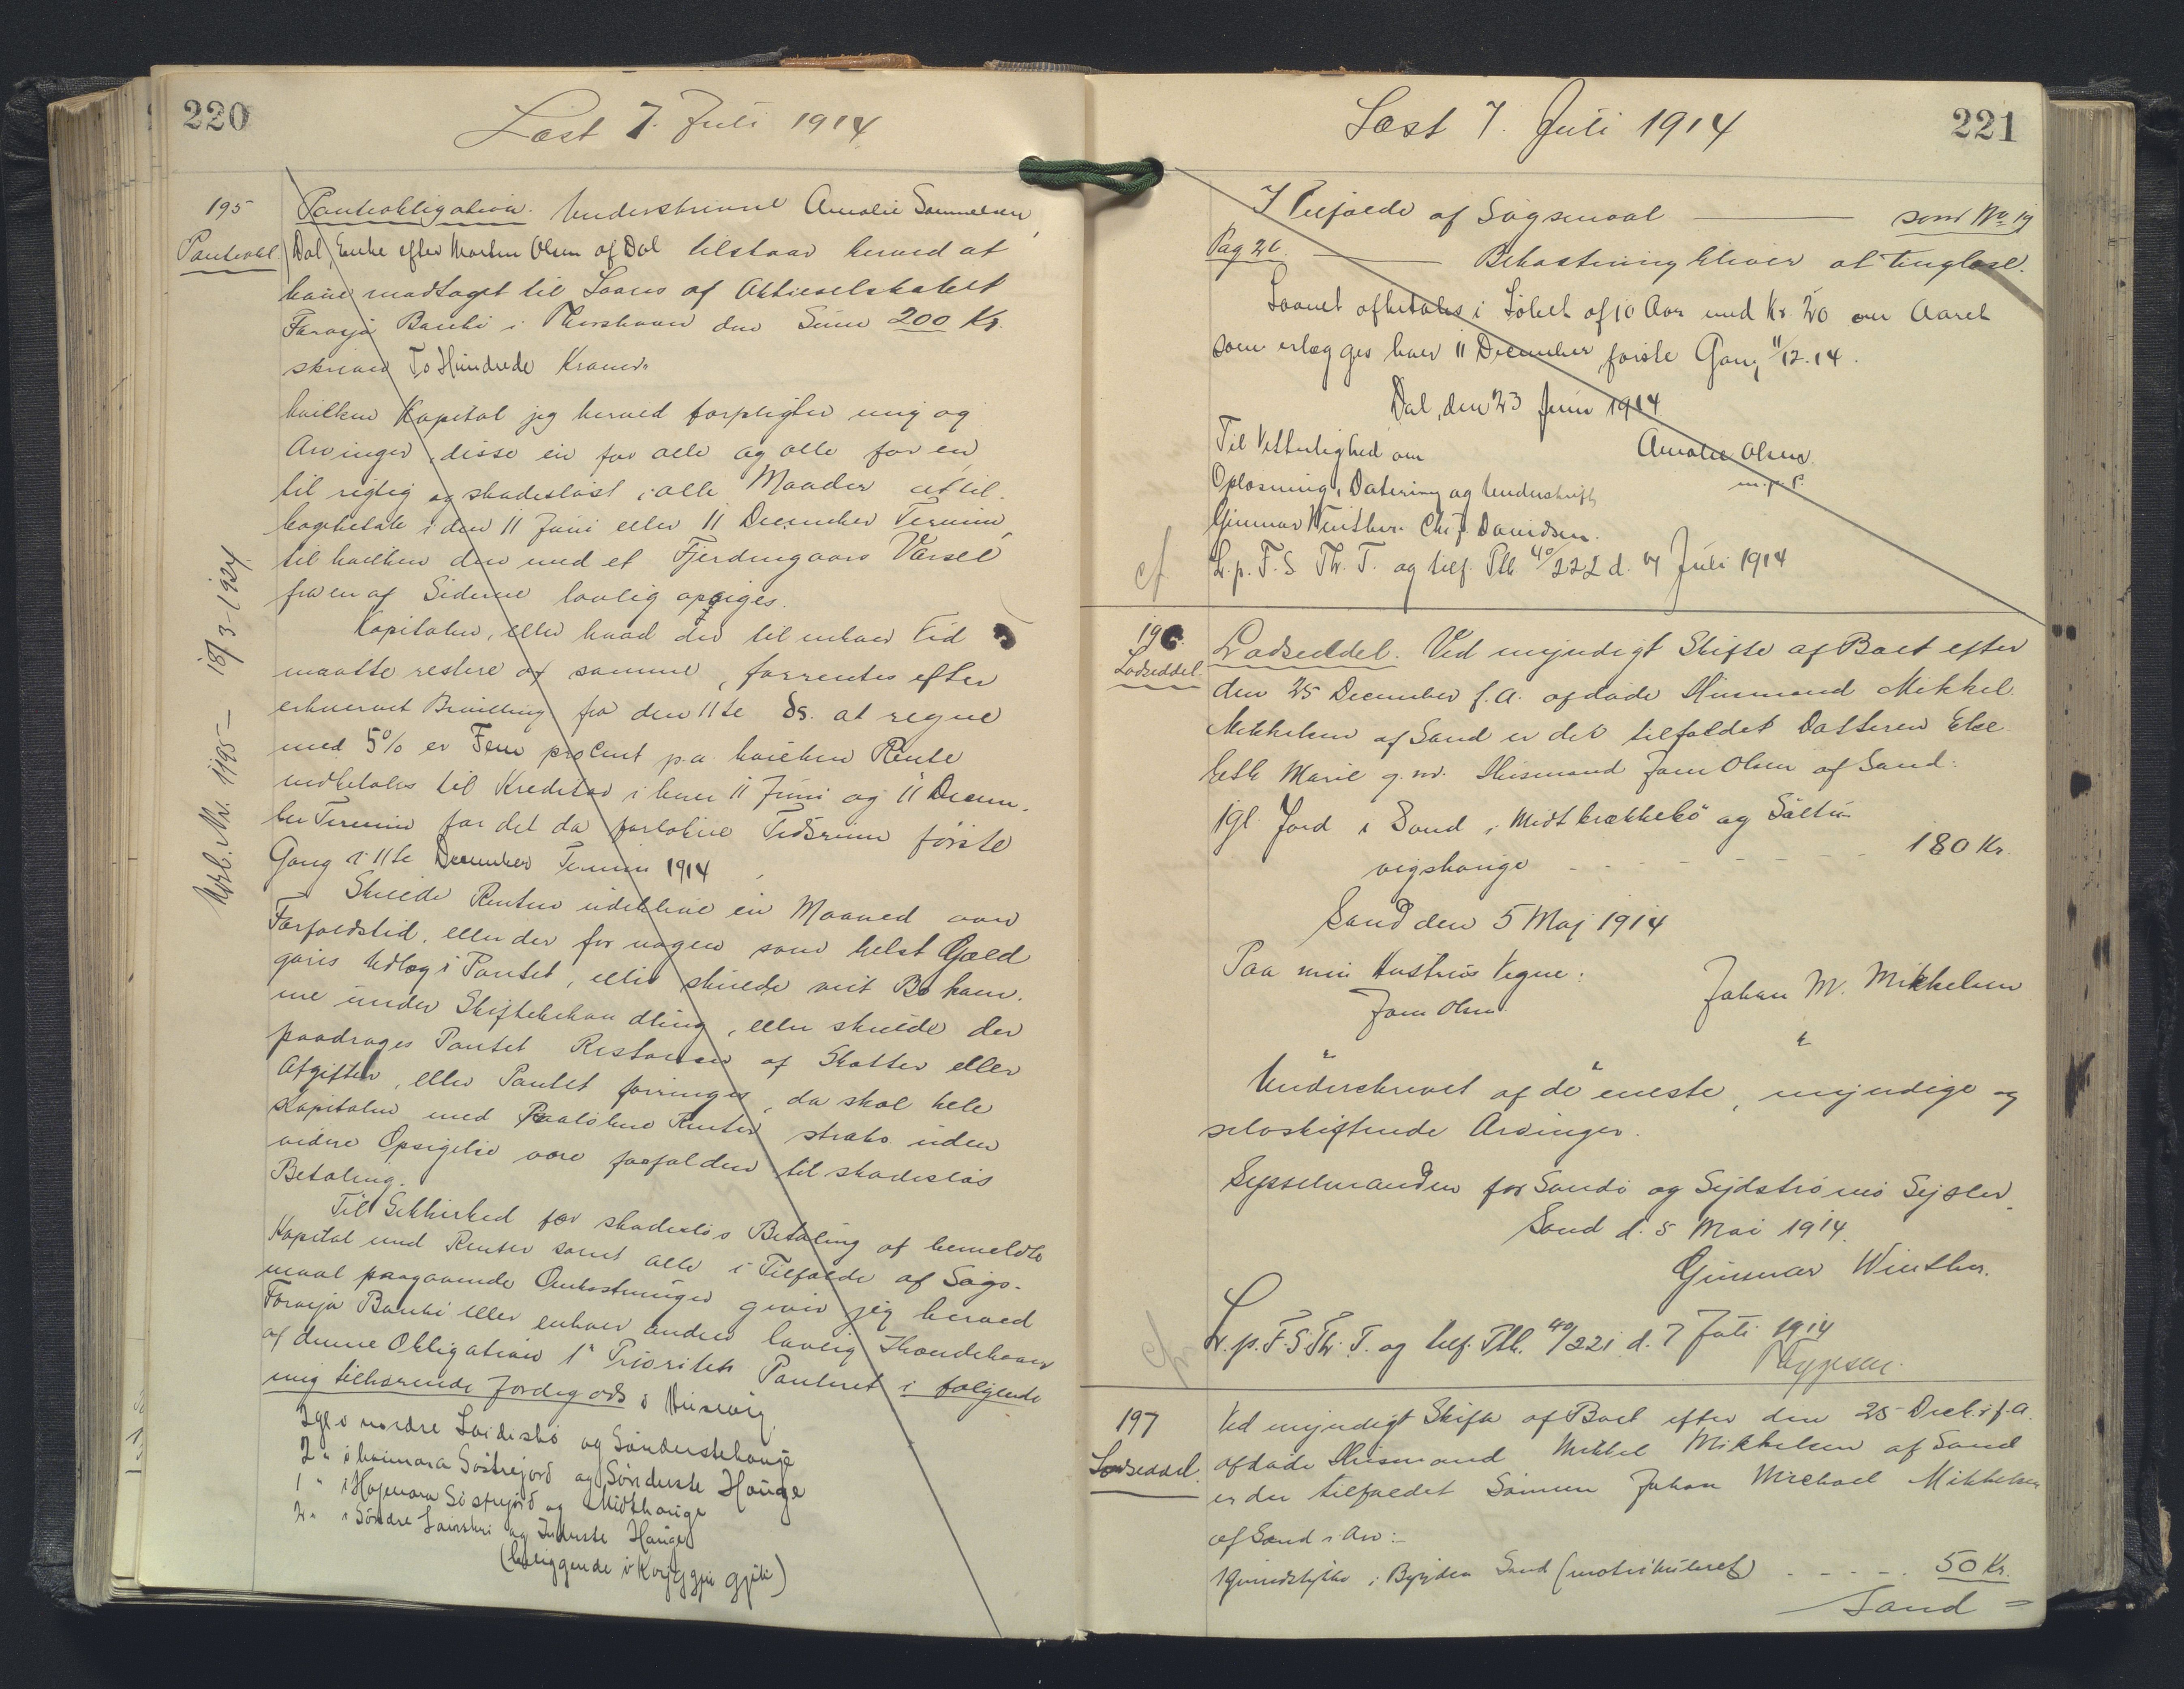 220
Læst 7. Juli 1914
195
Panteobl
Panteobligation. Underskrevne Amalie Samuelsen,
Dal, Enke efter Morten Olsen af Dal tilstaar herved at
have modtaget til Laans af Aktieselskabet
Færøja Banki i Thorshavn den Sum 200 Kr.
skriver To Hundrede Kroner
hvilken Kapital jeg herved forpligter mig og
Arvinger, disse en for alle og alle for en,
til rigtig og skadesløst i alle Maader at til-
bagebetale i den 11 Juni eller 11 December Termin,
til hvilken den med et Fjerdingaars Varsel
fra en af Siderne lovlig opsiges.
Kapitalen, eller hvad der til enhver Tid
maatte restere af samme, forrentes efter
erhvervet Bevilling fra den 11te ds. at regne
med 5% er Fem procent p.a. hvilken Rente
indbetales til Kreditor i hver 11 Juni og 11 Decem-
ber Termin for det da forløbne Tidsrum første
Gang i 11te December Termin 1914
Skulde Renten udeblive en Maaned over
Forfaldstid, eller der for nogen som helst Gæld
gøres Udlæg i Pantet, eller skulde mit Bo kom-
me under Skiftebehandling, eller skulde der
paadrages Pantet Restancer af Skatter eller
Afgifter, eller Pantet forringes, da skal hele
Kapitalen med Paaløbne Renter straks uden
videre Opsigelse være forfalden til skadesløs
Betaling.
Til Sikkerhed for skadesløs Betaling af bemeldte
Kapital med Renter samt alle i Tilfælde af Søgs-
maal paagaaende Omkostninger giver jeg herved
Færøja Banki eller enhver anden lovlig Ihændehaver
af denne Obligation 1ste Prioritets Panteret i følgende
mig tilhørende Jordegods i Húsavig
2gl i nordre Loidisbø og Sønderstehauge
2 " i heimara Søstrejord og Sønderste Hauge
1 " i Høgenara Søstrejord og Midthauge
2 " i Søndre og Inderste Hauge
(beliggende i Kryggju gjøti)
Udsl. Nr. 1195 — 18/3 - 1924
221
Læst 7. Juli 1914
I Tilfælde af Søgsmaal — som No 19
Pag 26. — Bekostning bliver at tinglæse.
Laanet afbetales i Løbet af 10 Aar med Kr. 20 om Aaret
som erlægges hver 11 December første Gang 11/12.14.
Dal, den 23 Juni 1914
Til Vitterlighed om
Amalie Olsen
m.f.P.
Oplæsning, Datering og Underskrift
Gunnar Winther. Chr. J. Davidsen.
cf
L.p. F.S Th. T. og tilf. Ptb. 40/222 d. 7 Juli 1914
196
Lodseddel.
Lodseddel. Ved myndigt Skifte af Boet efter
den 25 December f.A. afdøde Husmand Mikkel
Mikkelsen af Sand er det tilfaldet Datteren Else-
beth Marie g. m. Husmand Joen Olsen af Sand:
1gl. Jord i Sand, i Midtbrekkebø og Saltu-
vigshauge - - - - - - 180 Kr.
Sand den 5 Maj 1914
Paa min Hustrus Vegne:
Joen Olsen
Johan M. Mikkelsen
Underskrevet af de eneste, myndige og
selvskiftende Arvinger.
Sysselmanden for Sandø og Sydstrømø Sysler.
Sand d. 5 Mai 1914.
Gunnar Winther.
cf
L.p. F.S.Th. T. og tilf. Ptb. 40/221 d. 7 Juli 1914
197
Lodseddel.
Ved myndigt Skifte af Boet efter den 25 Decb. i f.A.
afdøde Husmand Mikkel Mikkelsen af Sand
er der tilfaldet Sønnen Johan Michael Mikkelsen
af Sand i Arv:-
1 Grundstykke i Bygden Sand (matrikuleret) - - - - 50 Kr.
Sand =